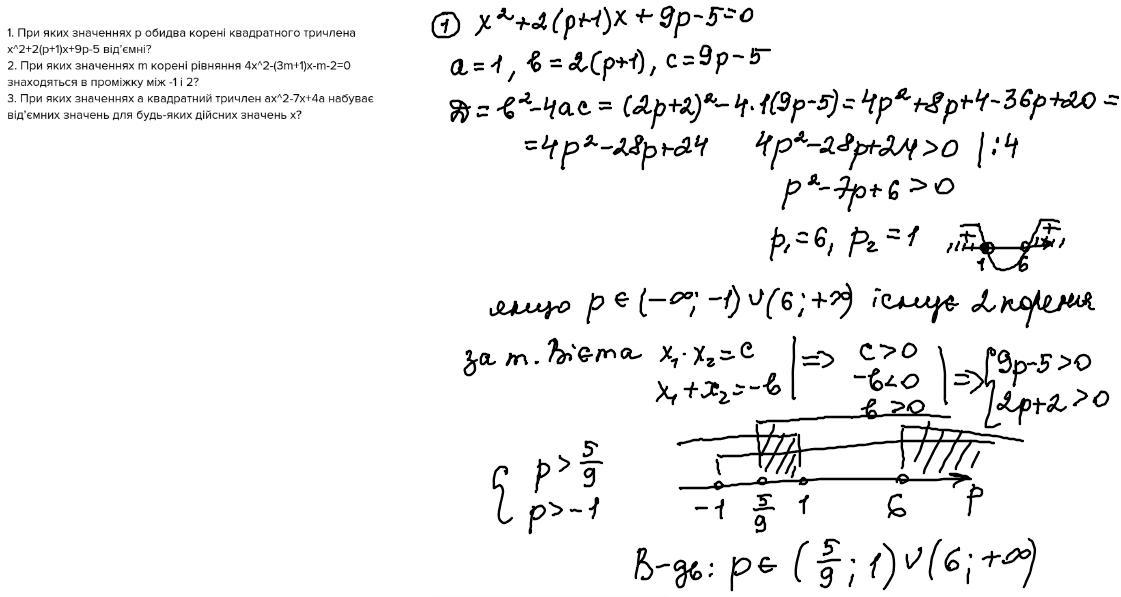 1. При яких значеннях p обидва корені квадратного тричлена
x^2+2(p+1)x+9p-5 від'ємні?
2. При яких значеннях m корені рівняння 4x^2-(3m+1)x-m-2=0
знаходяться в проміжку між -1 і 2?
3. При яких значеннях a квадратний тричлен ax^2-7x+4a набуває
від'ємних значень для будь-яких дійсних значень x?
① x² + 2(p+1)x + 9p-5=0
a=1, b=2(p+1), c=9p-5
D = b²-4ac = (2p+2)²-4·1(9p-5)=4p²+8p+4-36p+20 =
=4p²-28p+24 4p²-28p+24>0 |:4
p²-7p+6 >0
p₁=6, p₂=1
+ +
1 6
якщо p ∈ (-∞; -1) ∪ (6; +∞) існує 2 кореня
за т. Вієта x₁·x₂=c | => c>0 | => { 9p-5>0
x₁+x₂=-b | -b<0 | { 2p+2>0
b>0
{ p> 5/9
p>-1
-1 5/9 1 6 p
В-дь: p∈ (5/9; 1) ∪ (6; +∞)